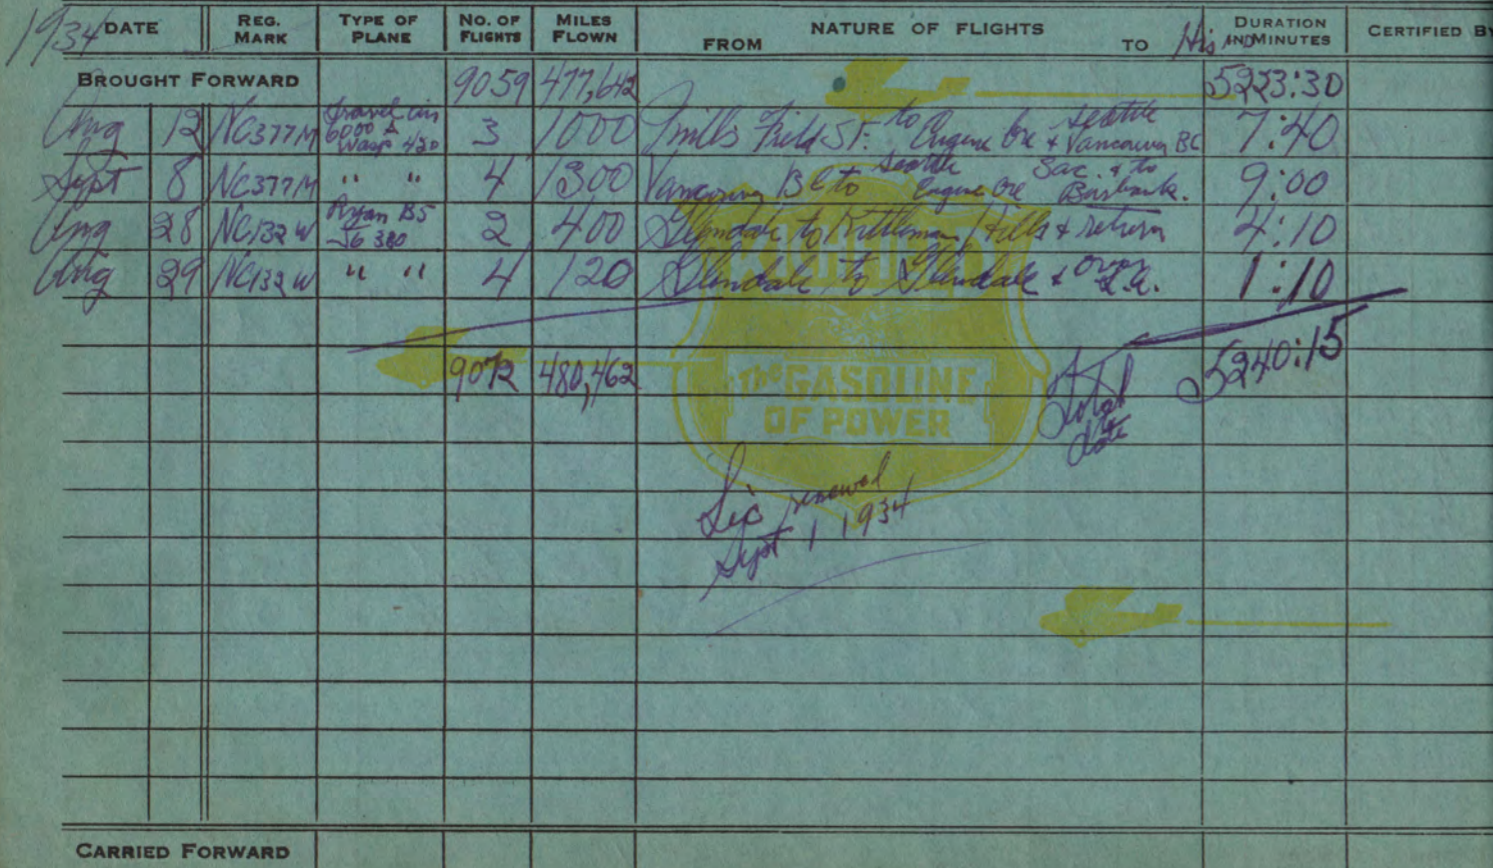 1934 DATE REG. MARK TYPE OF PLANE NO. OF FLIGHTS MILES FLOWN FROM NATURE OF FLIGHTS TO Hrs AND DURATION IN MINUTES CERTIFIED BY
BROUGHT FORWARD 9059 477,642 5223:30
Aug 12 NC377M Travel air 6000 A Wasp 420 3 1000 Mills Field S.F. to Eugene Ore & Seattle Vancouver BC 7:40
Sept 8 NC377M " " 4 1300 Vancouver BC to Seattle Eugene Ore Sac. & to Burbank. 9:00
Aug 28 NC132W Ryan B5 J6 300 2 400 Glendale to Kettleman Hills & return 4:10
Aug 29 NC132W " " 4 120 Glendale to Glendale & over L.A. 1:10
9072 480,462 Total to date 5240:15
THE GASOLINE
OF POWER
Lic renewal
Sept 1 1934
CARRIED FORWARD